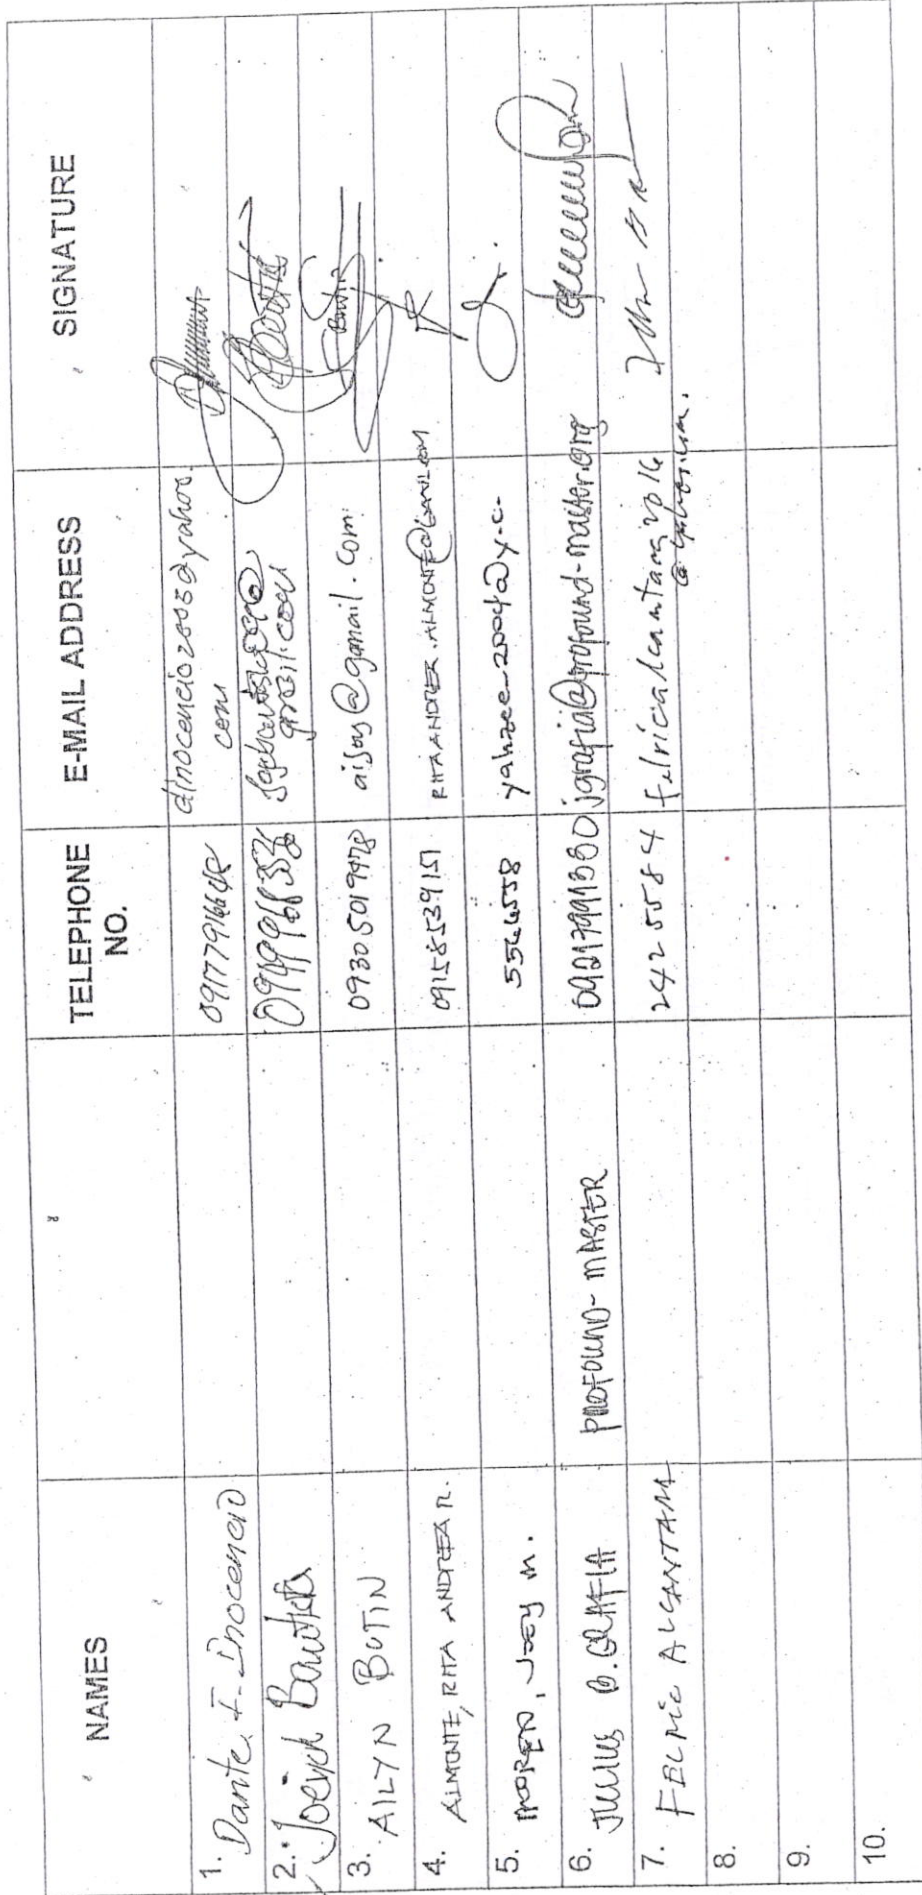 NAMES TELEPHONE NO. E-MAIL ADDRESS SIGNATURE
1. Dante F. Inocencio dinocencio2005@yahoo.com
2. Bautista
3. AILYN BUTIN 09305019478 aijoy@gmail.com
4. ALMONTE, RHA ANDREA R. 09158539151 RHAANDREA.ALMONTE@GMAIL.COM
5. JOEY M. 5546558 yahzee_2004@y.c.
6. JULIUS B. GRAFIA PROFOUND-MASTER 09217991380 jgrafia@profound-master.org
7. FELRIC ALCANTARA 242 5584 felricalcantara2016@yahoo.com.
8.
9.
10.